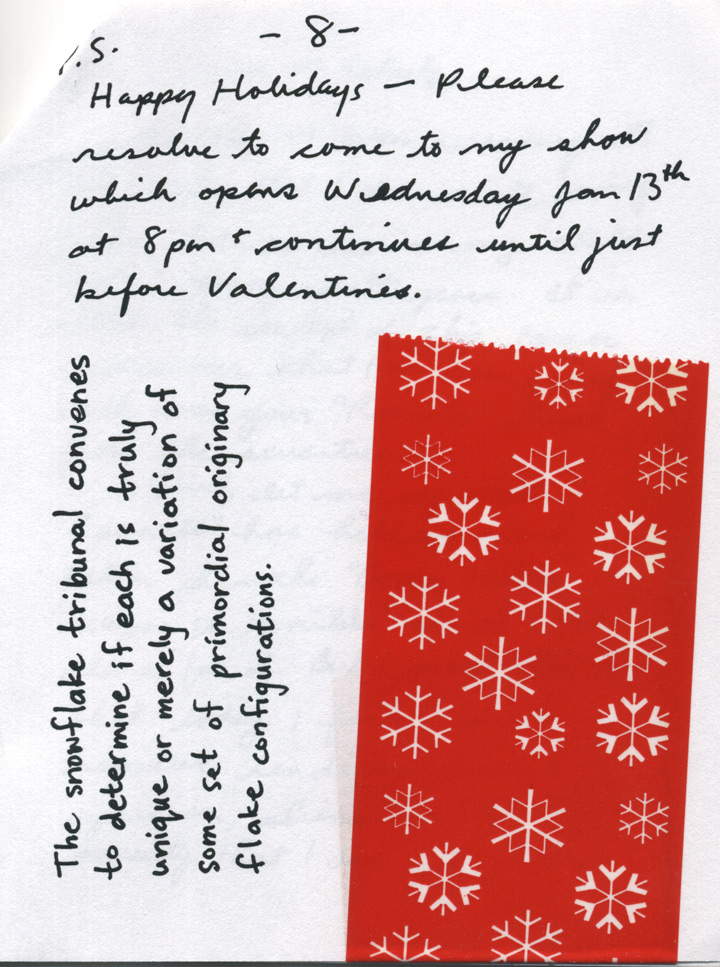 - 8 -
P.S.
Happy Holidays — Please
resolve to come to my show
which opens Wednesday Jan 13th
at 8pm + continues until just
before Valentines.
The snowflake tribunal convenes
to determine if each is truly
unique or merely a variation of
some set of primordial originary
flake configurations.